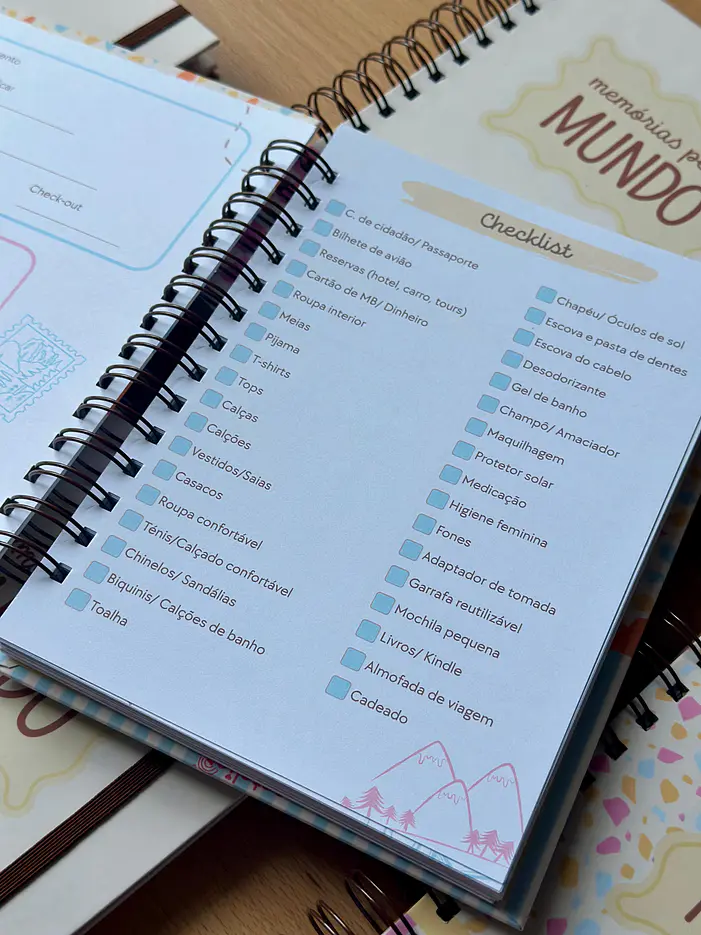 Check-out
memórias
MUNDO
Checklist
C. de cidadão/ Passaporte
Bilhete de avião
Reservas (hotel, carro, tours)
Cartão de MB/ Dinheiro
Roupa interior
Meias
Pijama
T-shirts
Tops
Calças
Calções
Vestidos/Saias
Casacos
Roupa confortável
Ténis/Calçado confortável
Chinelos/ Sandálias
Biquinis/ Calções de banho
Toalha
Chapéu/ Óculos de sol
Escova e pasta de dentes
Escova do cabelo
Desodorizante
Gel de banho
Champô/ Amaciador
Maquilhagem
Protetor solar
Medicação
Higiene feminina
Fones
Adaptador de tomada
Garrafa reutilizável
Mochila pequena
Livros/ Kindle
Almofada de viagem
Cadeado